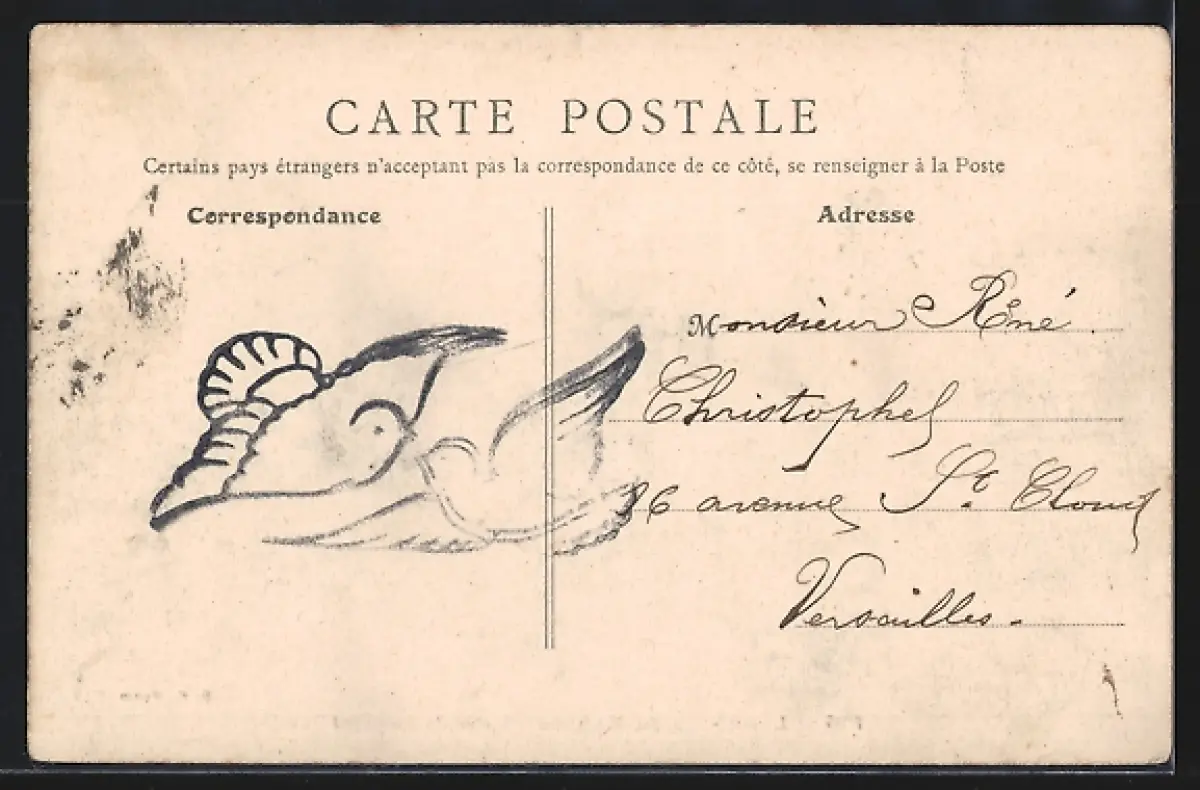 CARTE POSTALE
Certains pays étrangers n'acceptant pas la correspondance de ce côté, se renseigner à la Poste
Correspondance
Adresse
Monsieur René
Christophel
86 avenue St. Cloud
Versailles.